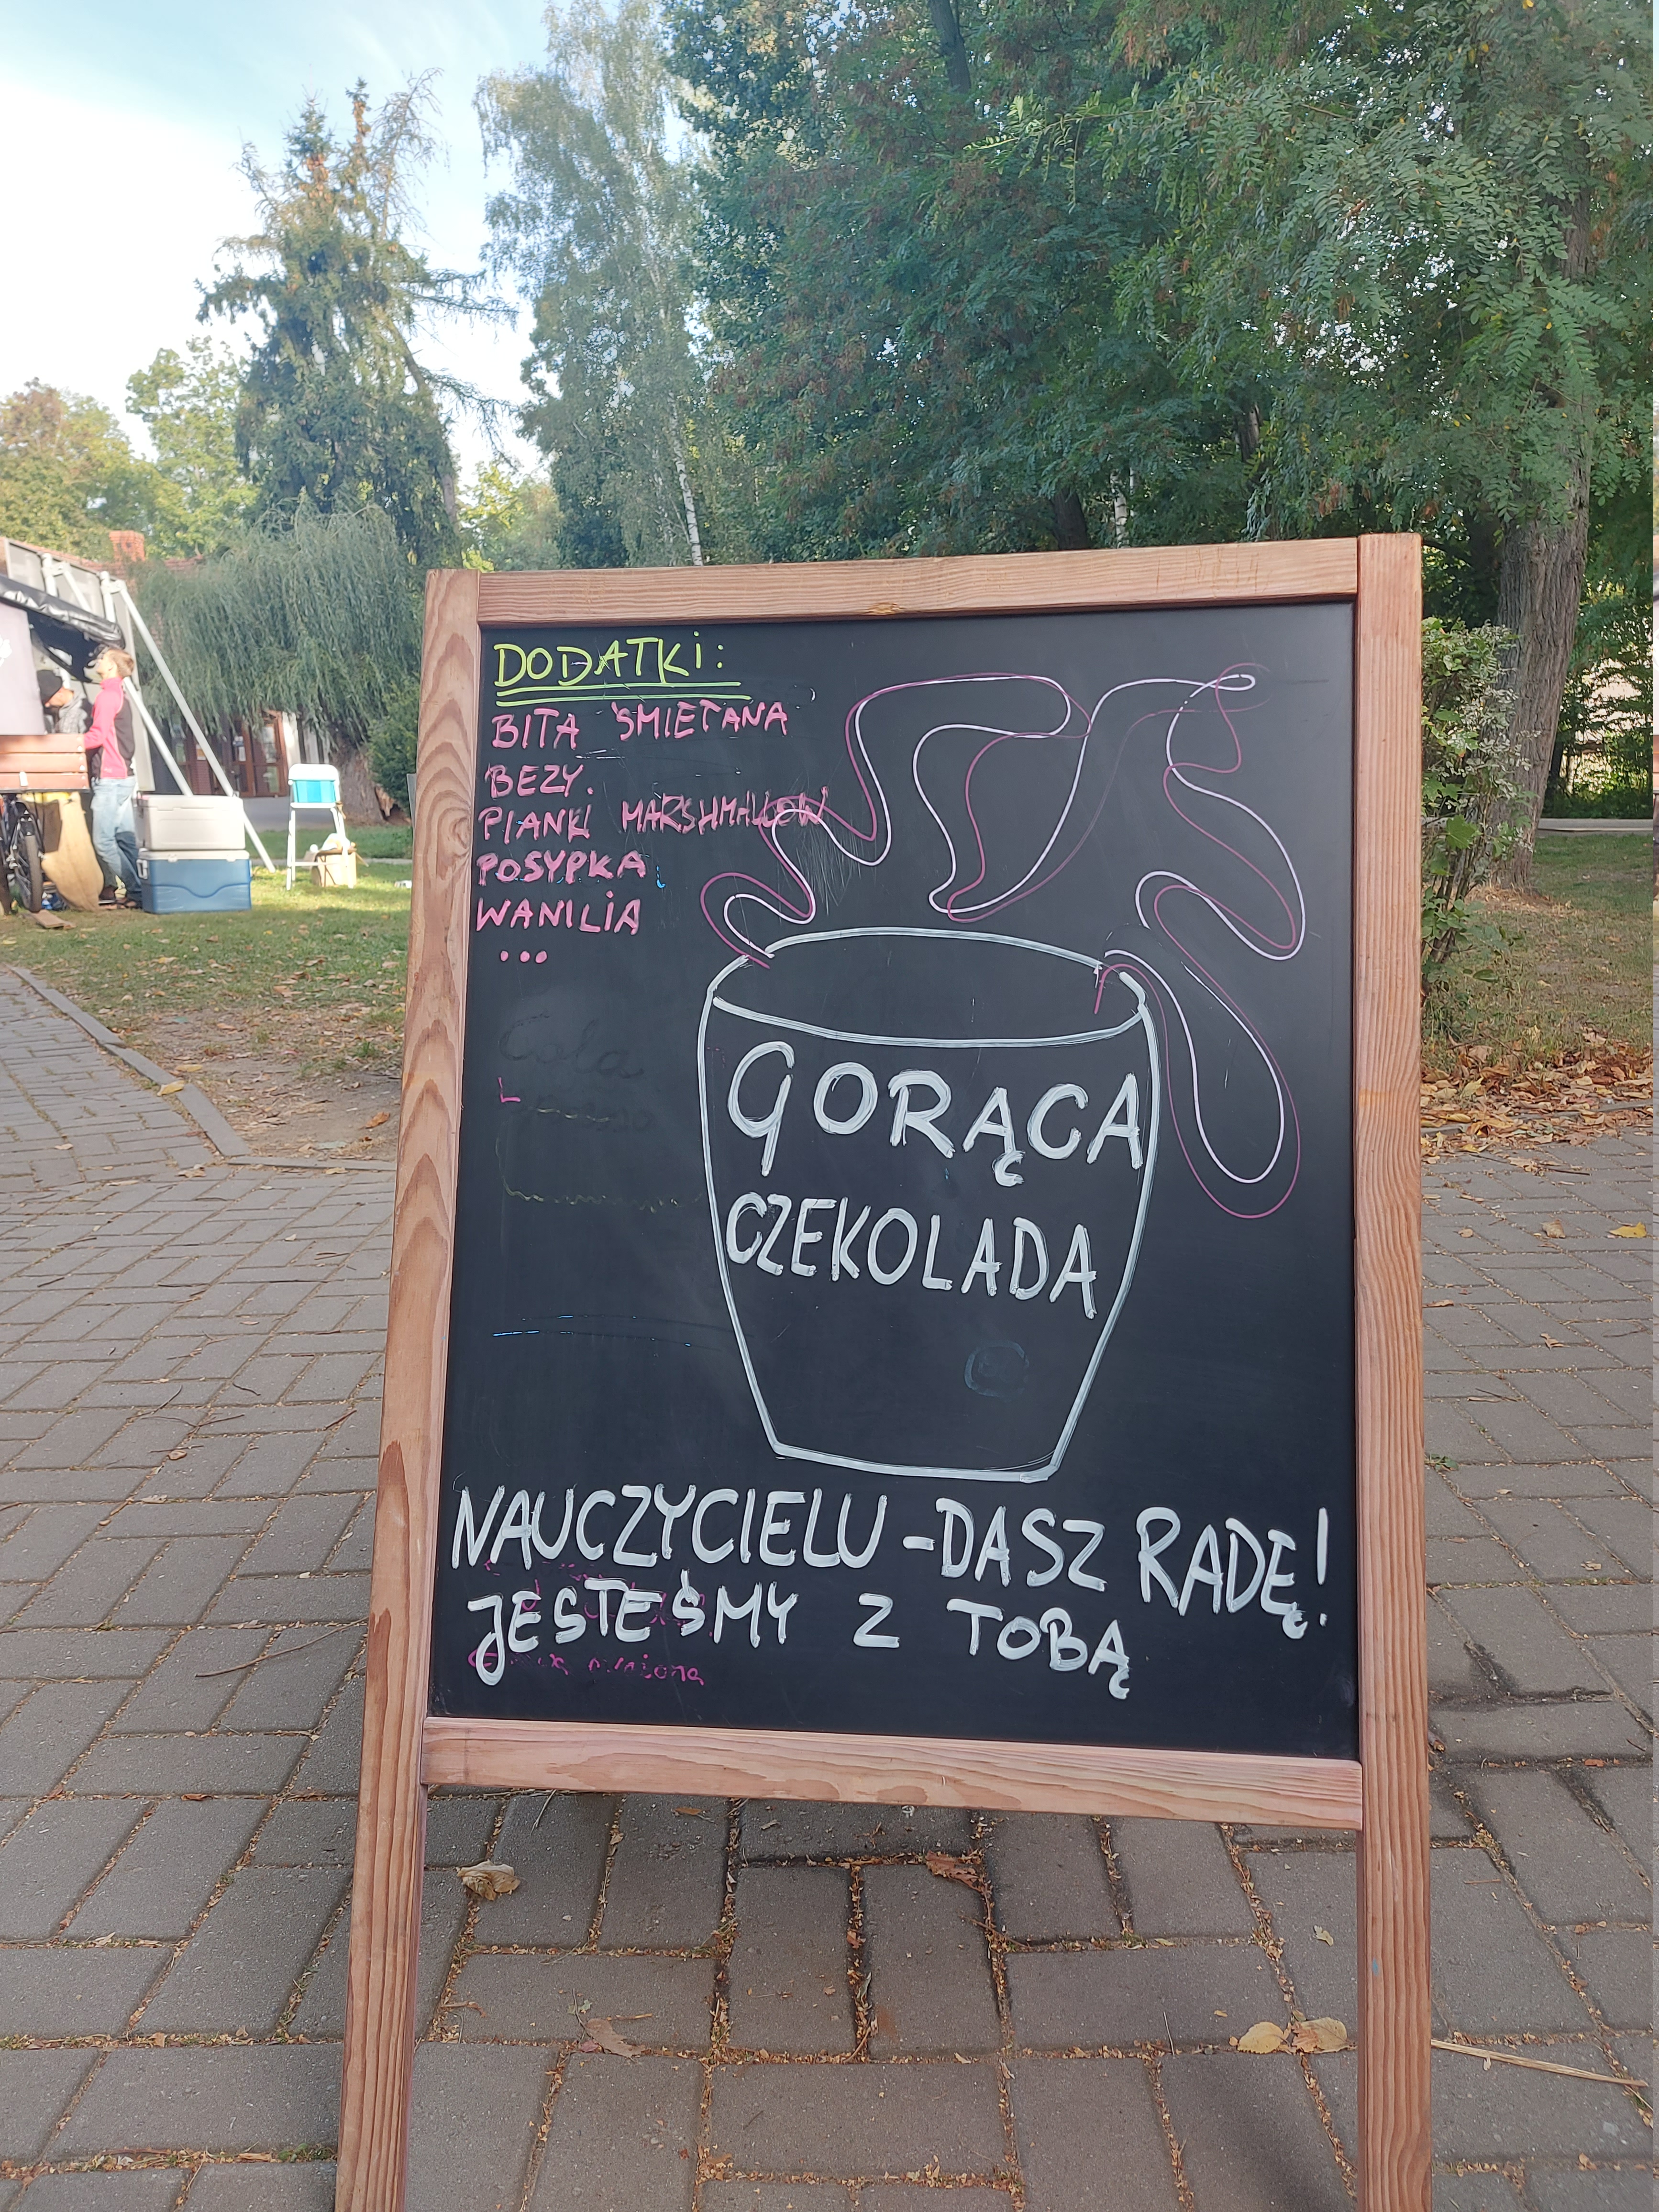 DODATKi:
BITA ŚMIETANA
BEZY.
PIANKI MARSHMALLOW
POSYPKA
WANILIA
...
GORĄCA
CZEKOLADA
NAUCZYCIELU - DASZ RADĘ!
JESTEŚMY Z TOBĄ